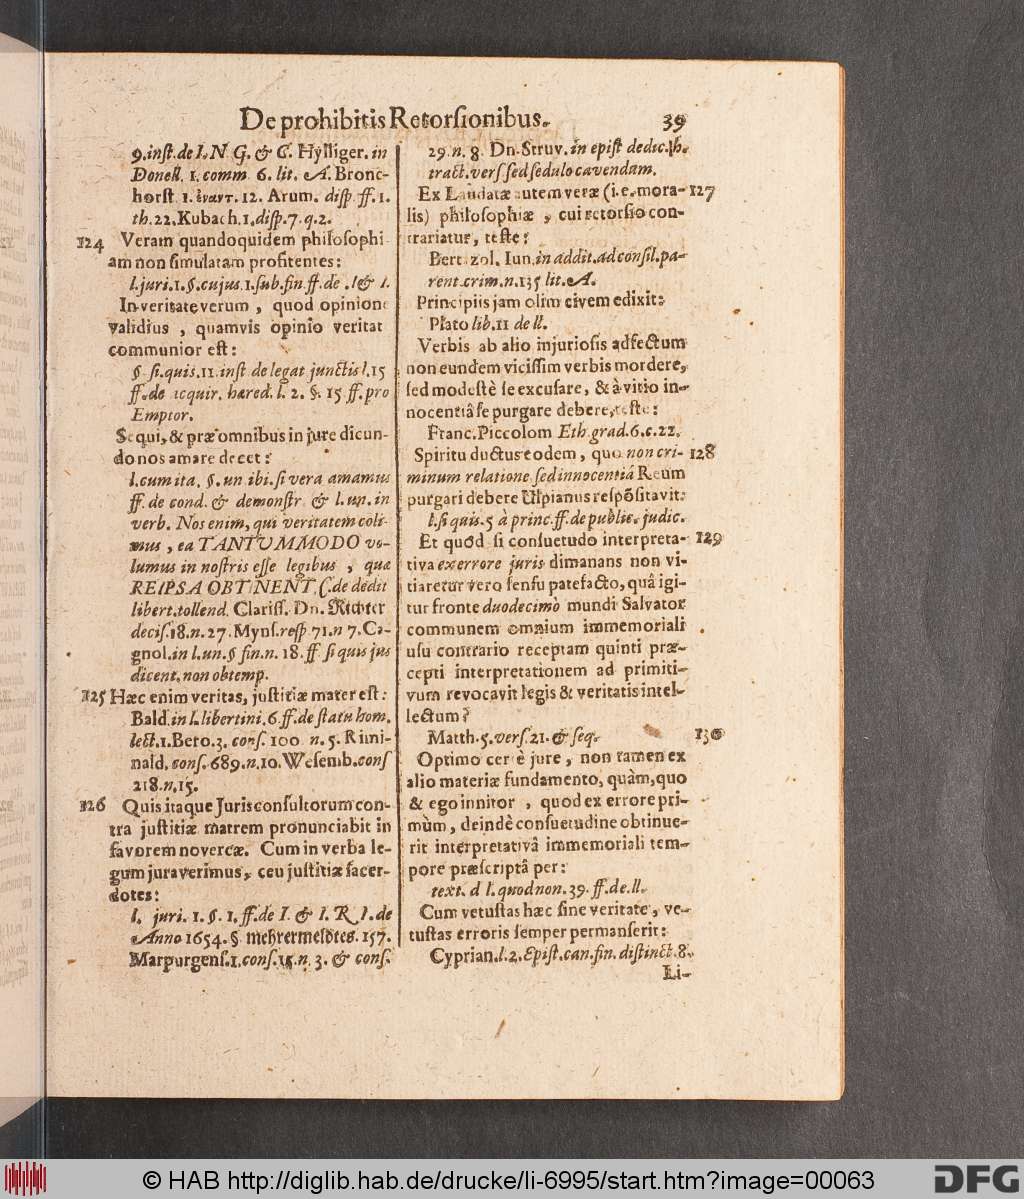 De prohibitis Retorsionibus.
39
9. inst. de I. N G. & C. Hylliger. in
Donell. 1. comm 6. lit. A. Bronc-
horst 1. ἐναντ. 12. Arum. disp ff. 1.
th. 22. Kubach. 1. disp. 7. q. 2.
124 Veram quandoquidem philosophi
am non simulatam profitentes:
l. juri. 1. §. cujus. 1. sub. fin ff. de I & I.
In veritate verum, quod opinione
validius, quamvis opinio veritat
communior est:
§. si. quis. 11. inst de legat junctis l. 15
ff. de acquir. hæred. l. 2. §. 15 ff. pro
Emptor.
Sequi, & præ omnibus in jure dicun-
do nos amare decet:
l. cum ita. §. un ibi. si vera amamus
ff. de cond. & demonstr & l. un. in
verb. Nos enim, qui veritatem coli-
mus, ea TANTUMMODO vo-
lumus in nostris esse legibus, quæ
REIPSA OBTINENT. C. de dedit
libert. tollend. Clariss. Dn. Richter
decis. 18. n. 27. Myns. resp 71. n 7. Ca-
gnol. in l. un. § fin. n. 18. ff si quis jus
dicent. non obtemp.
125 Hæc enim veritas, justitiæ mater est:
Bald. in l. libertini. 6. ff. de statu hom.
lect. 1. Bero. 3. cons. 100 n. 5. Rimi-
nald. cons. 689. n. 10. Wesemb. cons
218. n. 15.
126 Quis itaque Jurisconsultorum con-
tra justitiæ matrem pronunciabit in
favorem novercæ. Cum in verba le-
gum juraverimus, ceu justitiæ sacer-
dotes:
l. juri. 1. §. 1. ff. de I. & I. R I. de
Anno 1654. §. mehrermeldtes. 157.
Marpurgens. 1. cons. 15. n. 3. & cons.
29. n. 8. Dn. Struv. in epist dedic. h.
tract. vers sed sedulo cavendum.
Ex Laudatæ autem veræ (i. e. mora- 127
lis) philosophiæ, cui retorsio con-
trariatur, teste:
Bertazol. Iun. in addit. ad consil. pa-
rent. crim. n. 135 lit. A.
Principiis jam olim civem edixit:
Plato lib. 11 de ll.
Verbis ab alio injuriosis adfectum
non eundem vicissim verbis mordere,
sed modestè se excusare, & à vitio in-
nocentiâ se purgare debere, teste:
Franc. Piccolom Eth. grad. 6. c. 22.
Spiritu ductus eodem, quo non cri- 128
minum relatione sed innocentiâ Reum
purgari debere Ulpianus respõsitavit:
l. si quis. 5 à princ. ff. de public. judic.
Et quòd si consuetudo interpreta- 129
tiva ex errore juris dimanans non vi-
tiaretur vero sensu patefacto, quâ igi-
tur fronte duodecimò mundi Salvator
communem omnium immemoriali
usu contrario receptam quinti præ-
cepti interpretationem ad primiti-
vum revocavit legis & veritatis intel-
lectum?
Matth. 5. vers. 21. & seq. 130
Optimo certè jure, non tamen ex
alio materiæ fundamento, quàm, quo
& ego innitor, quod ex errore pri-
mùm, deindè consuetudine obtinue-
rit interpretativâ immemoriali tem-
pore præscriptâ per:
text. d l. quod non. 39. ff. de ll.
Cum vetustas hæc sine veritate, ve-
tustas erroris semper permanserit:
Cyprian. l. 2. Epist. can. fin. distinct. 8.
Li-
© HAB http://diglib.hab.de/drucke/li-6995/start.htm?image=00063
DFG